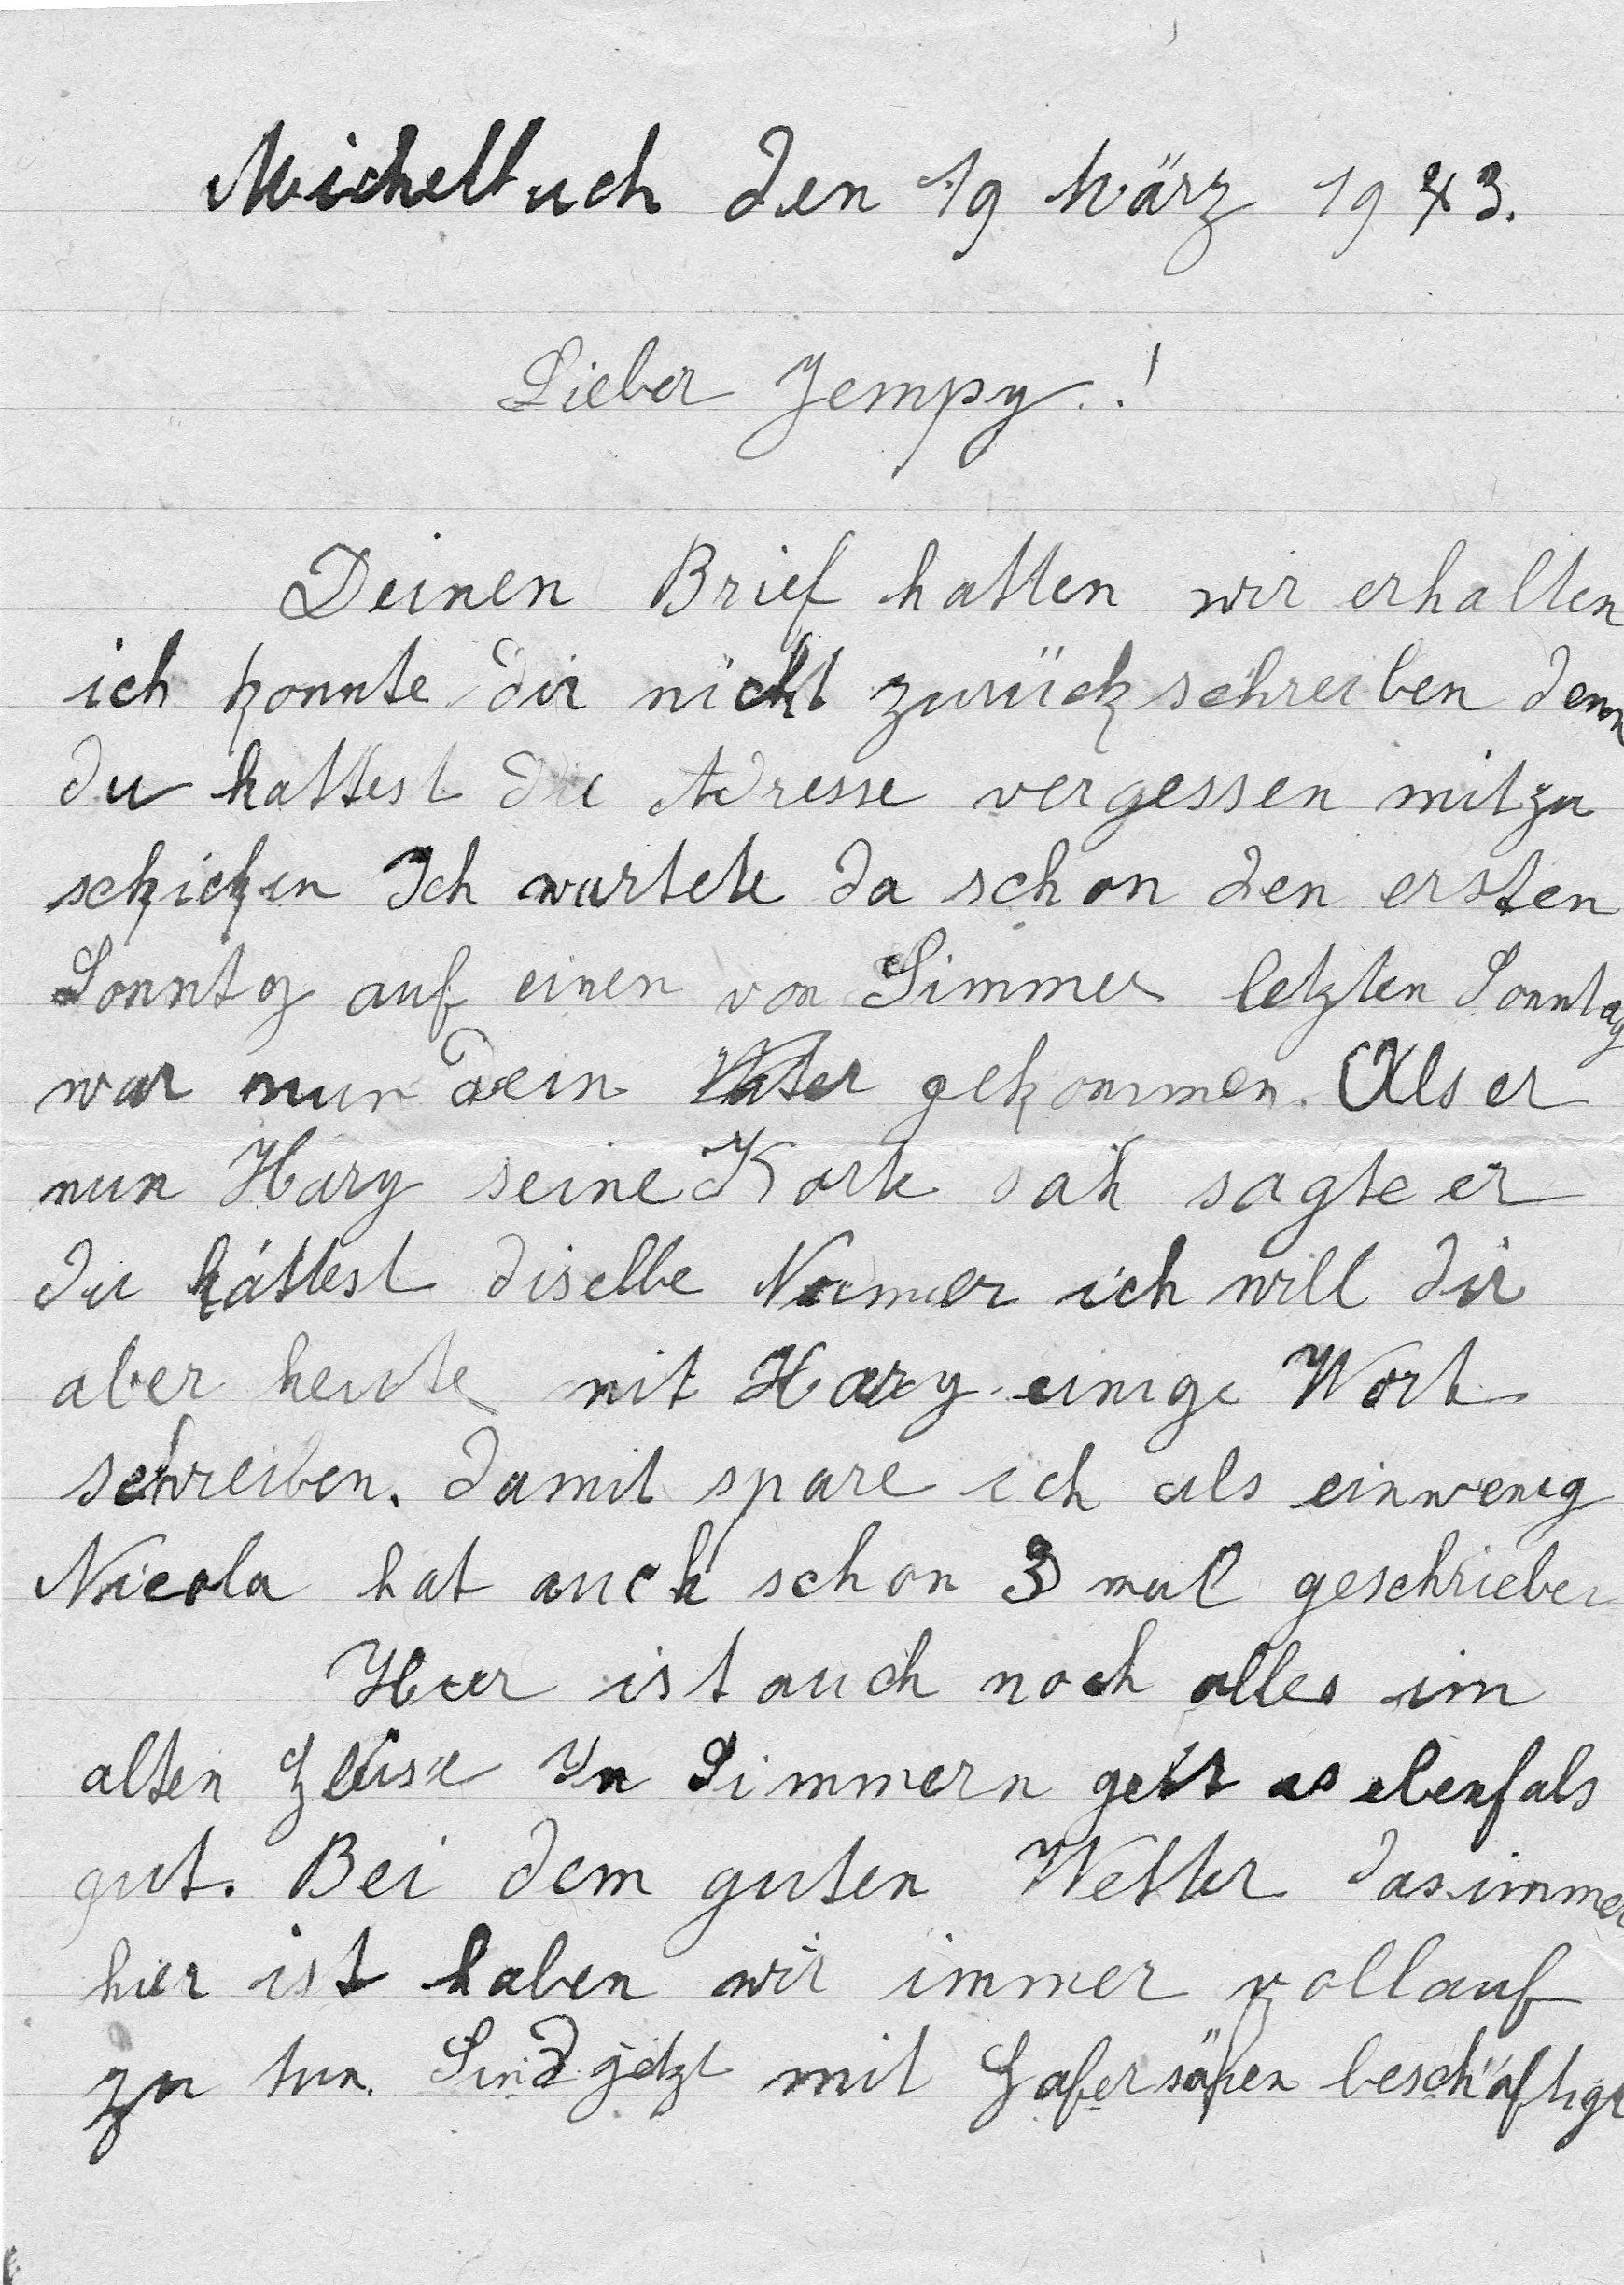 Michelbuch den 19 März 1943.
Lieber Jempy.!
Deinen Brief hatten wir erhalten
ich konnte dir nicht zurückschreiben denn
du hattest die Adresse vergessen mitzu
schicken Ich wartete da schon den ersten
Sonntg auf einen von Simmer letzten Sonntag
war nun dein Vater gekommen. Als er
nun Hary seine Karte sah sagte er
du hättest diselbe Numer ich will dir
aber heute mit Hary einige Wort
schreiben. damit spare ich als einwenig
Nicola hat auch schon 3 mal geschrieben
Hier ist auch noch alles im
alten Gleise In Simmern get es ebenfals
gut. Bei dem guten Wetter das immer
hier ist haben wir immer vollauf
zu tun. Sind jetzt mit Hafersähen beschäftigt